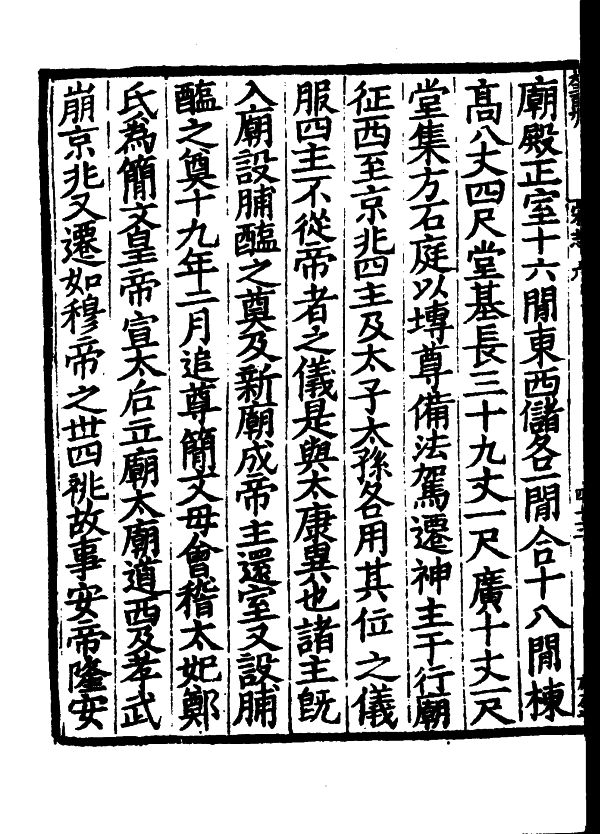 廟殿正室十六閒東西儲各一閒合十八閒棟
髙八丈四尺堂基長三十九丈一尺廣十丈一尺
堂集方石庭以塼尊備法駕遷神主于行廟
征西至京兆四主及太子太孫各用其位之儀
服四主不從帝者之儀是與太康異也諸主旣
入廟設脯醢之奠及新廟成帝主還室又設脯
醢之奠十九年二月追尊簡文母會稽太妃鄭
氏爲簡文皇帝宣太后立廟太廟道西及孝武
崩京兆又遷如穆帝之丗四祧故事安帝隆安